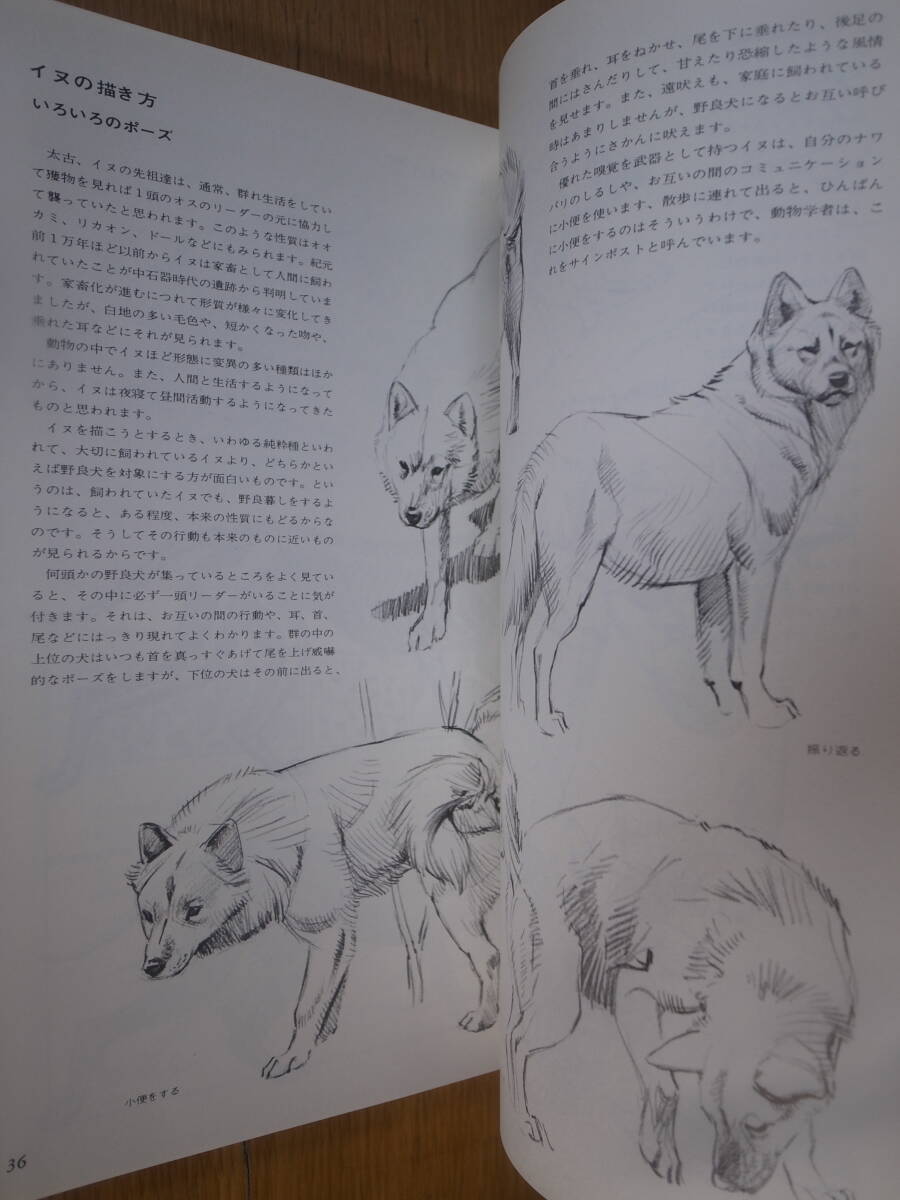 イヌの描き方
いろいろのポーズ
太古、イヌの先祖達は、通常、群れ生活をしてい
て獲物を見れば1頭のオスのリーダーの元に協力し
て襲っていたと思われます。このような性質はオオ
カミ、リカオン、ドールなどにもみられます。紀元
前1万年ほど以前からイヌは家畜として人間に飼わ
れていたことが中石器時代の遺跡から判明していま
す。家畜化が進むにつれて形質が様々に変化してき
ましたが、白地の多い毛色や、短かくなった吻や、
垂れた耳などにそれが見られます。
動物の中でイヌほど形態に変異の多い種類はほか
にありません。また、人間と生活するようになって
から、イヌは夜寝て昼間活動するようになってきた
ものと思われます。
イヌを描こうとするとき、いわゆる純粋種といわ
れて、大切に飼われているイヌより、どちらかとい
えば野良犬を対象にする方が面白いものです。とい
うのは、飼われていたイヌでも、野良暮しをするよ
うになると、ある程度、本来の性質にもどるからな
のです。そうしてその行動も本来のものに近いもの
が見られるからです。
何頭かの野良犬が集っているところをよく見てい
ると、その中に必ず一頭リーダーがいることに気が
付きます。それは、お互いの間の行動や、耳、首、
尾などにはっきり現れてよくわかります。群の中の
上位の犬はいつも首を真っすぐあげて尾を上げ威嚇
的なポーズをしますが、下位の犬はその前に出ると、
小便をする
36
首を垂れ、耳をねかせ、尾を下に垂れたり、後足の
間にはさんだりして、甘えたり恐縮したような風情
を見せます。また、遠吠えも、家庭に飼われている
時はあまりしませんが、野良犬になるとお互い呼び
合うようにさかんに吠えます。
優れた嗅覚を武器として持つイヌは、自分のナワ
バリのしるしや、お互いの間のコミュニケーション
に小便を使います、散歩に連れて出ると、ひんぱん
に小便をするのはそういうわけで、動物学者は、こ
れをサインポストと呼んでいます。
振り返る